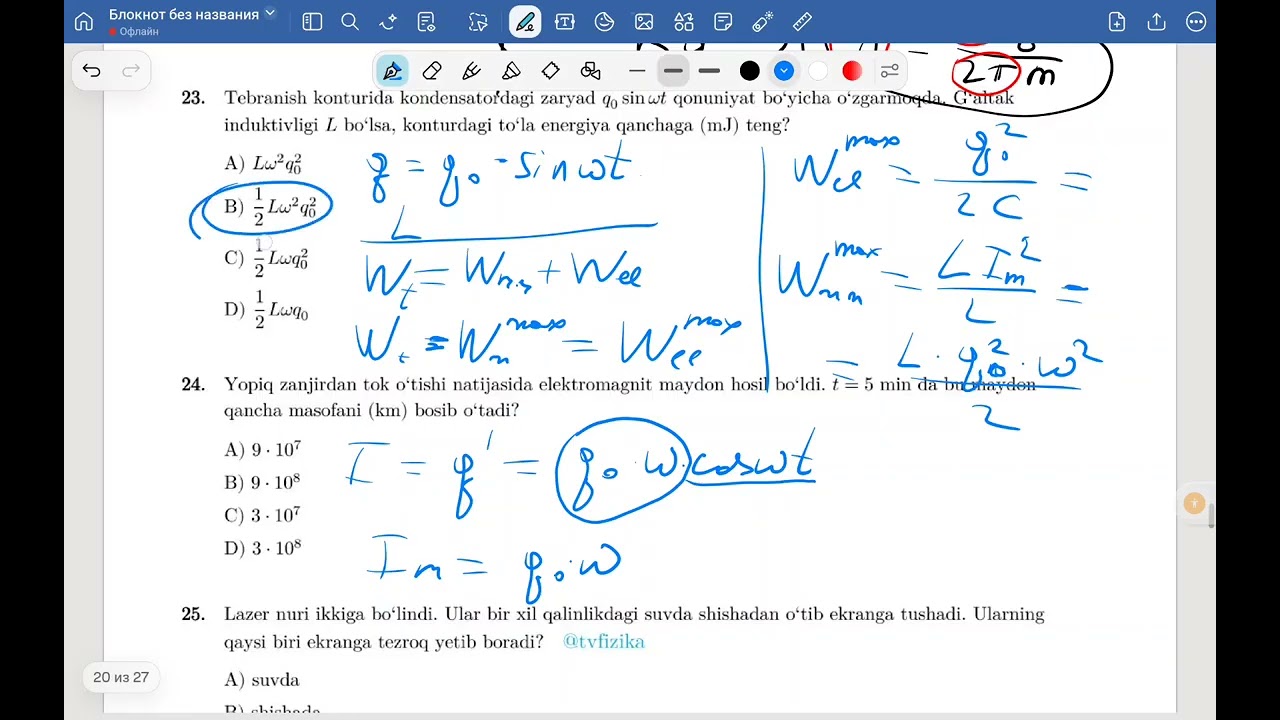 Блокнот без названия
Офлайн
2π m
23. Tebranish konturida kondensatordagi zaryad q₀ sin ωt qonuniyat bo‘yicha o‘zgarmoqda. G‘altak
induktivligi L bo‘lsa, konturdagi to‘la energiya qanchaga (mJ) teng?
A) Lω²q₀²
B) 1/2 Lω²q₀²
C) 1/2 Lωq₀²
D) 1/2 Lωq₀
q = q₀ · sin ωt
L
W_t = W_m + W_el
W_t = W_m^max = W_el^max
W_el^max = q₀² / 2C =
W_m^max = L I_m² / 2 =
= L · q₀² · ω² / 2
24. Yopiq zanjirdan tok o‘tishi natijasida elektromagnit maydon hosil bo‘ldi. t = 5 min da bu maydon
qancha masofani (km) bosib o‘tadi?
A) 9 · 10⁷
B) 9 · 10⁸
C) 3 · 10⁷
D) 3 · 10⁸
I = q' = q₀ · ω · cos ωt
I_m = q₀ · ω
25. Lazer nuri ikkiga bo‘lindi. Ular bir xil qalinlikdagi suvda shishadan o‘tib ekranga tushadi. Ularning
qaysi biri ekranga tezroq yetib boradi? @tvfizika
A) suvda
B) shishada
20 из 27